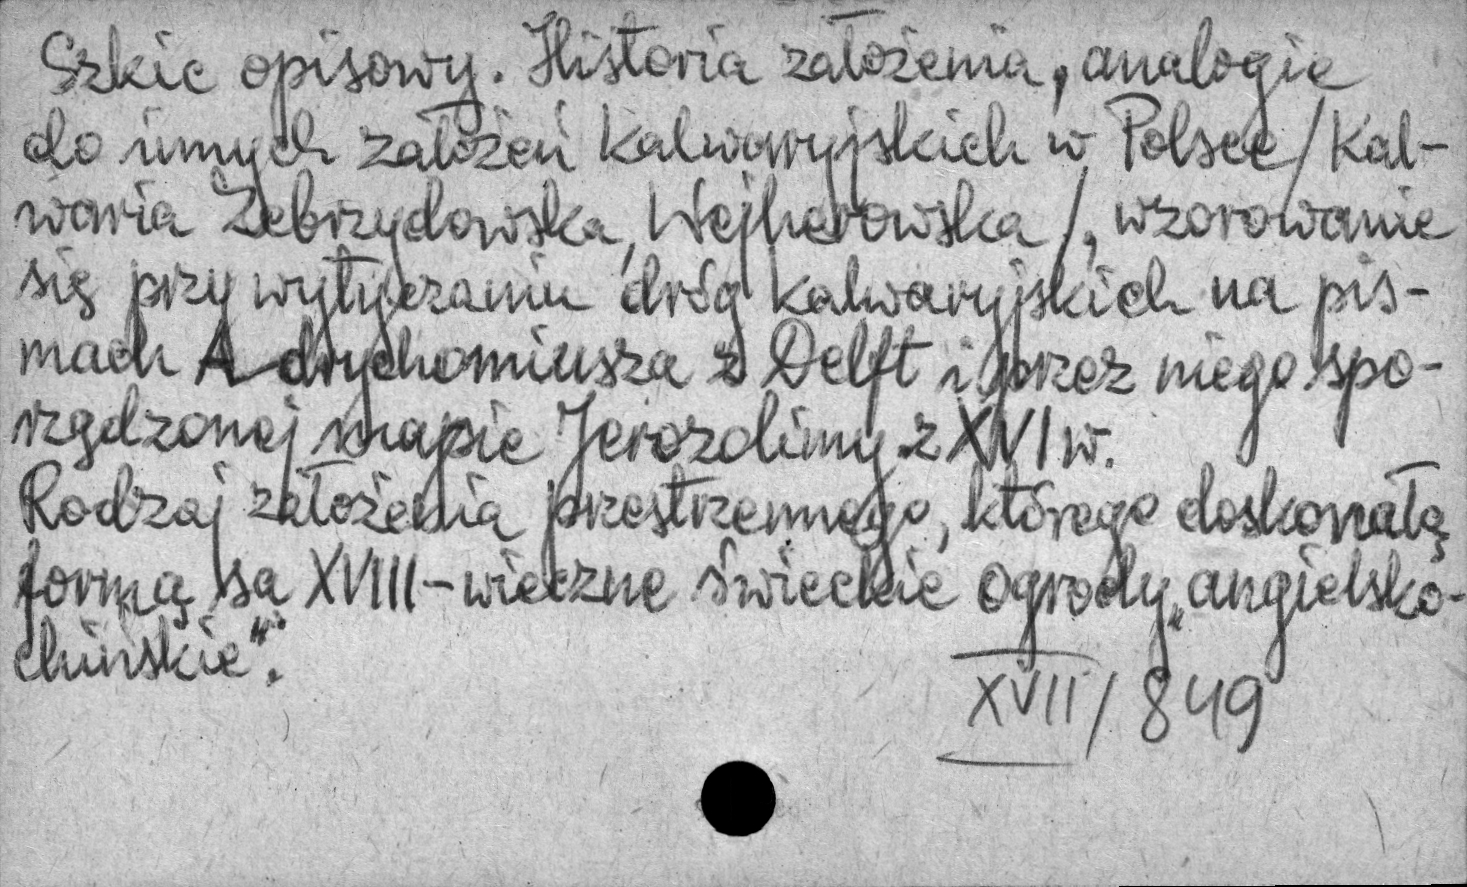 Szkic opisowy. Historia założenia, analogie
do innych założeń kalwaryjskich w Polsce /Kal-
waria Zebrzydowska, Wejherowska/, wzorowanie
się przy wytyczaniu dróg kalwaryjskich na pis-
mach A drychomiusza z Delft i przez niego spo-
rządzonej mapie Jerozolimy z XVI w.
Rodzaj założenia przestrzennego, którego doskonałą
formą są XVIII-wieczne świeckie ogrody „angielsko-
chińskie".
XVII/849